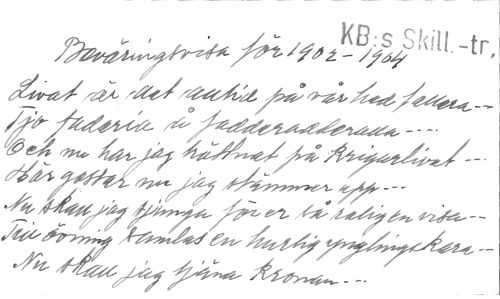 KB:s Skill.-tr.
Beväringsvisa för 1902-1904
Livat är det alltid på vår hed fallera--
Tjo faderia å fadderadderalla----
Och nu har jag tröttnat på krigarlivat---
Här gossar nu jag stämmer upp---
Nu skall jag sjunga för er så saligen visa--
Till övning samlas en hurtig ynglingskara--
Nu skall jag tjäna kronan---